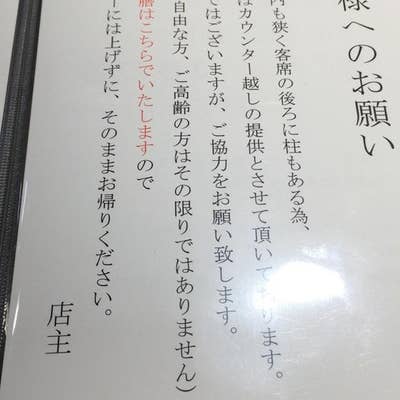 様へのお願い
内も狭く客席の後ろに柱もある為、
はカウンター越しの提供とさせて頂いております。
ではございますが、ご協力をお願い致します。
自由な方、ご高齢の方はその限りではありません）
膳はこちらでいたしますので
ーには上げずに、そのままお帰りください。
店主